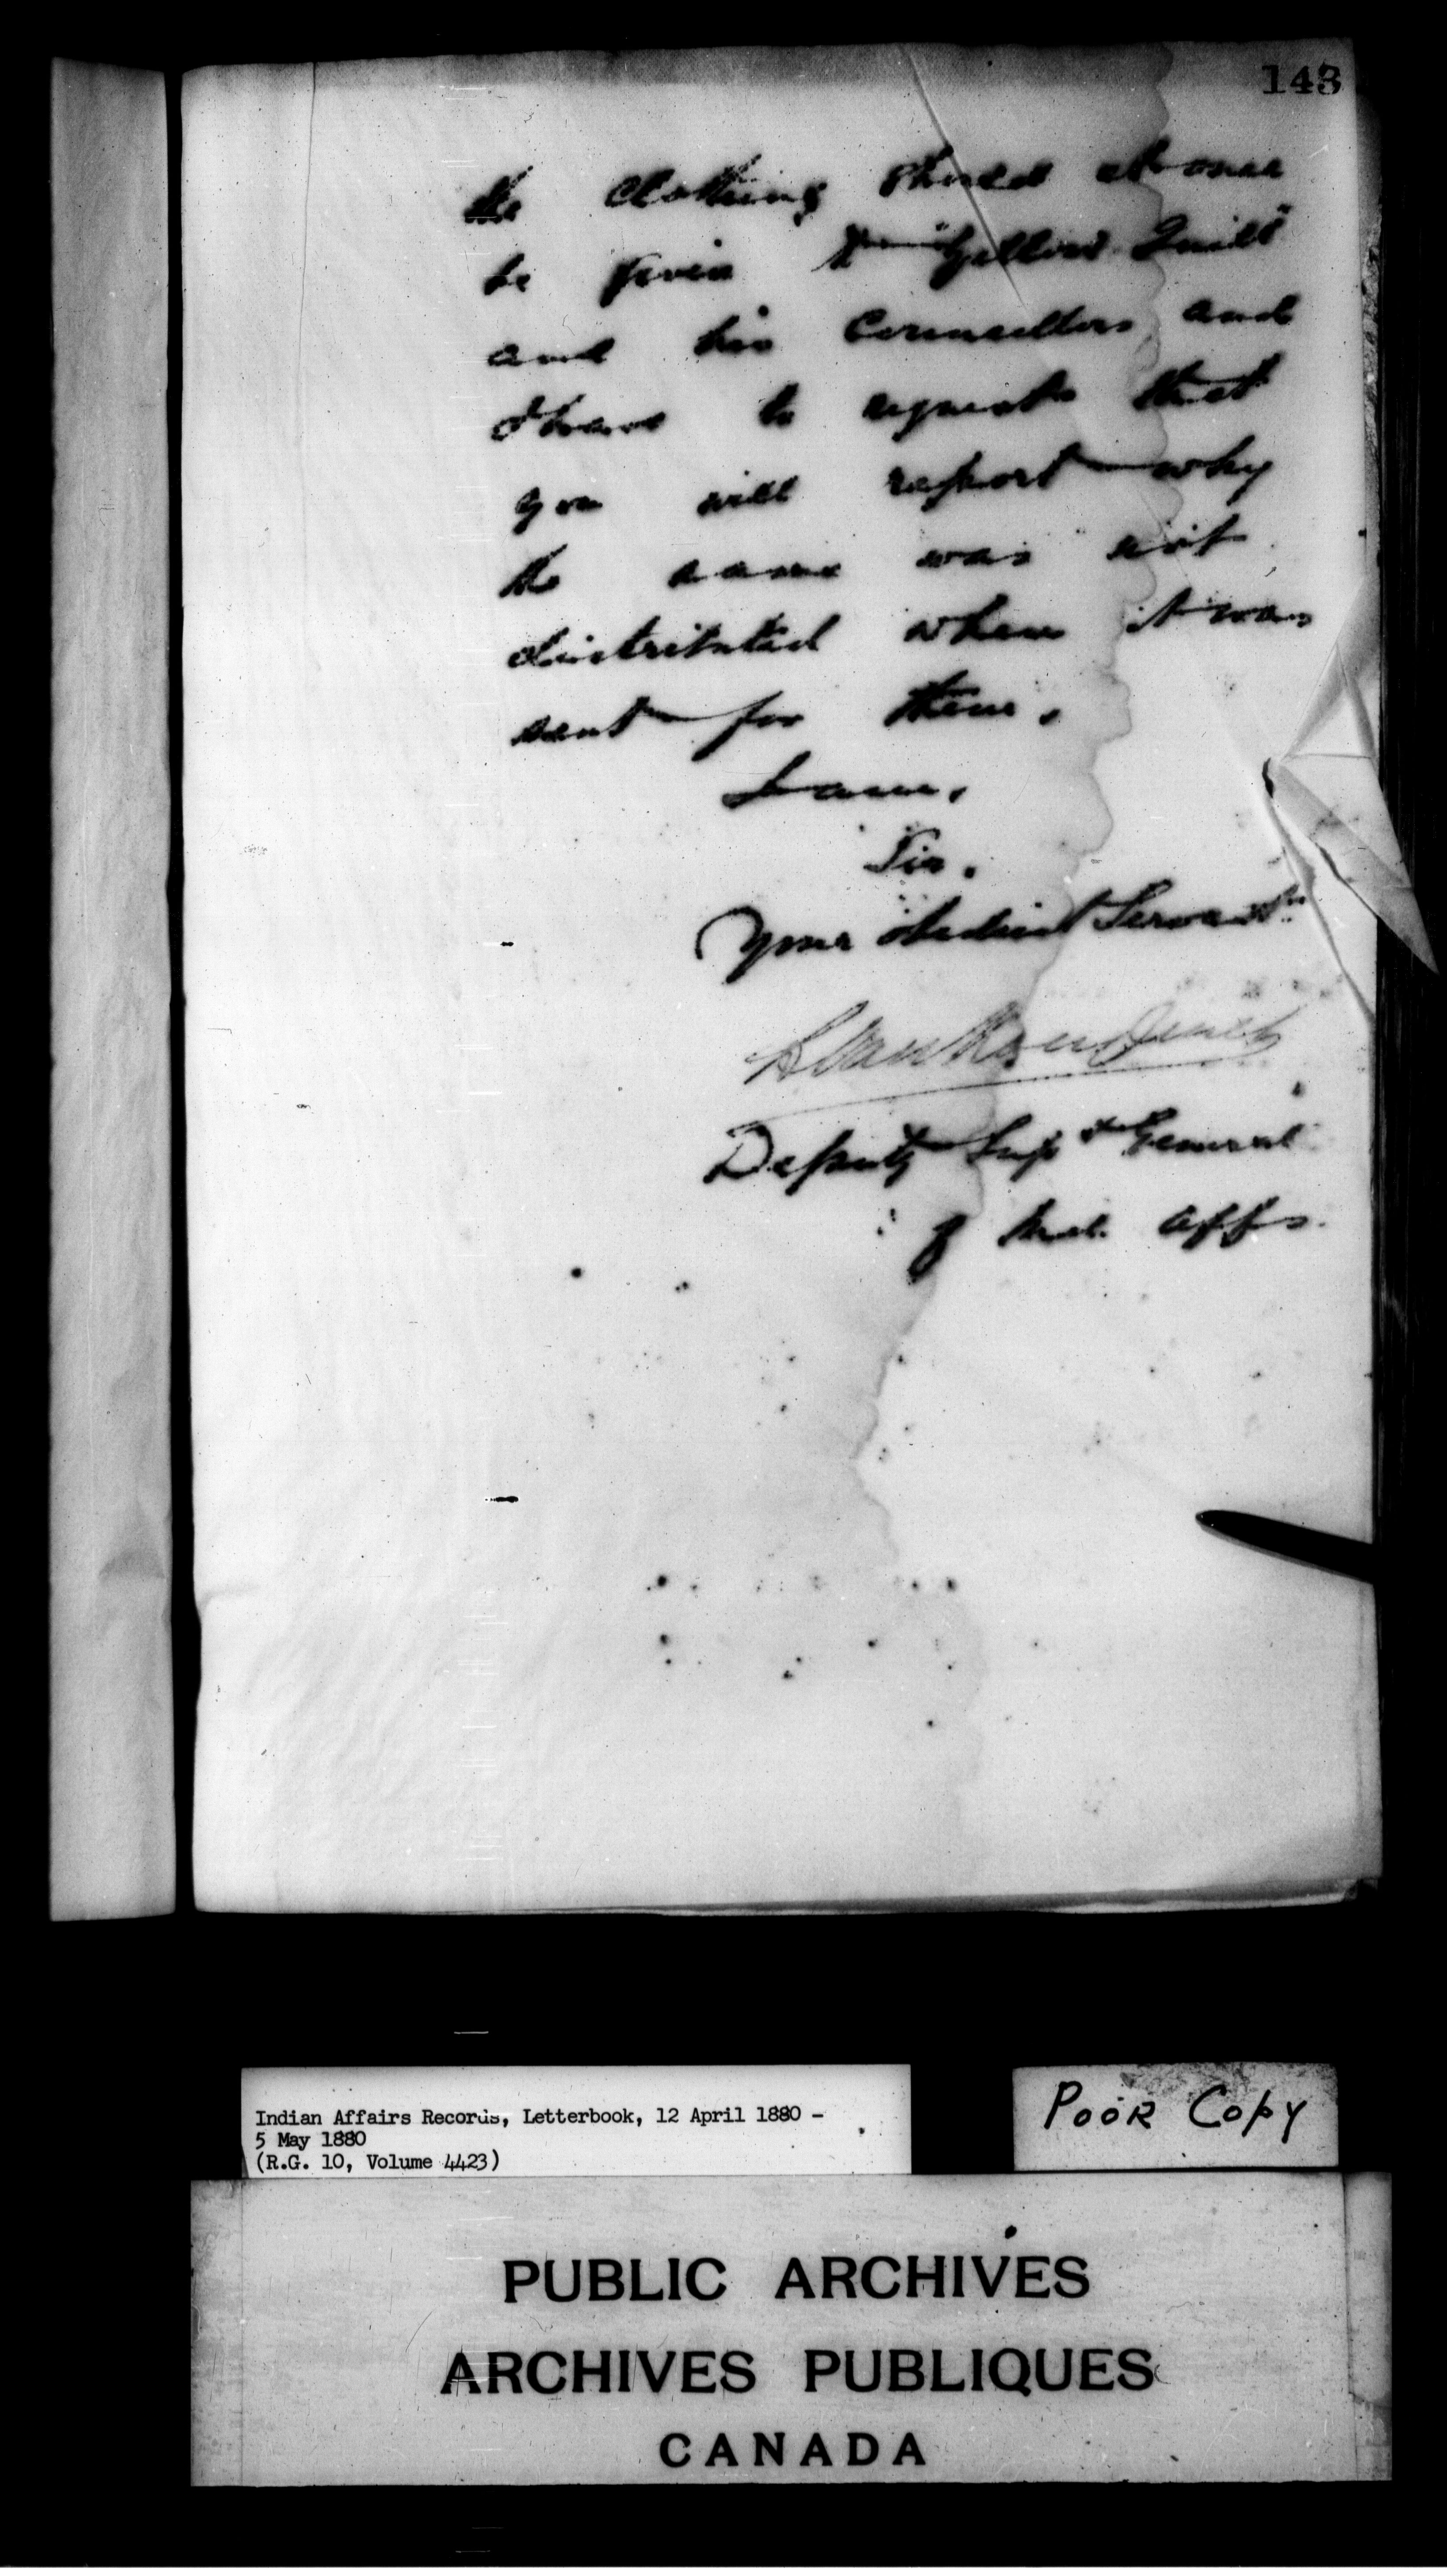 143
the clothing should at once
be given to "Yellow Quill"
and his Councillors and
I have to request that
you will report why
the same was not
distributed when it was
sent for them.
I am,
Sir,
Your obedient Servant
L VanKoughnet
Deputy Supt General
of Ind. Affs.
Indian Affairs Records, Letterbook, 12 April 1880 -
5 May 1880
(R.G. 10, Volume 4423)
POOR COPY
PUBLIC ARCHIVES
ARCHIVES PUBLIQUES
CANADA